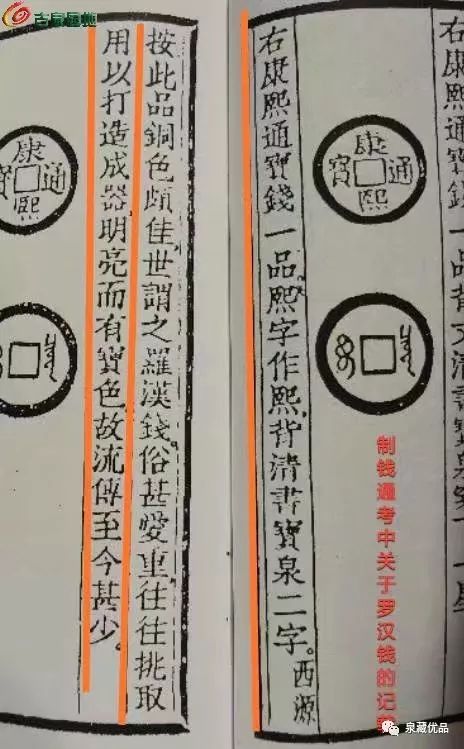 右康熙通寶錢一品背文清書寶
康熙通寶
右康熙通寶錢一品，熙字作熙，背清書寶泉二字。西源
制钱通考中关于罗汉钱的记
按此品銅色頗佳世謂之羅漢錢。俗甚愛重往往挑取
用以打造成器明亮而有寶色故流傳至今甚少。
康熙通寶
泉藏优品